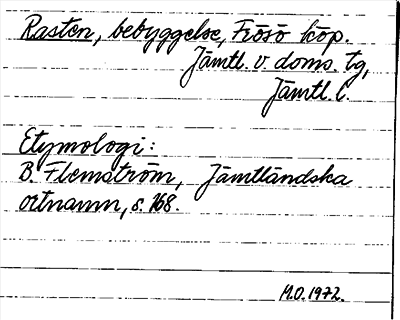 Rasten, bebyggelse, Frösö köp.
Jämtl. v. doms. tg,
Jämtl. l.
Etymologi:
B. Flemström, Jämtländska
ortnamn, s. 168.
M.O. 1972.